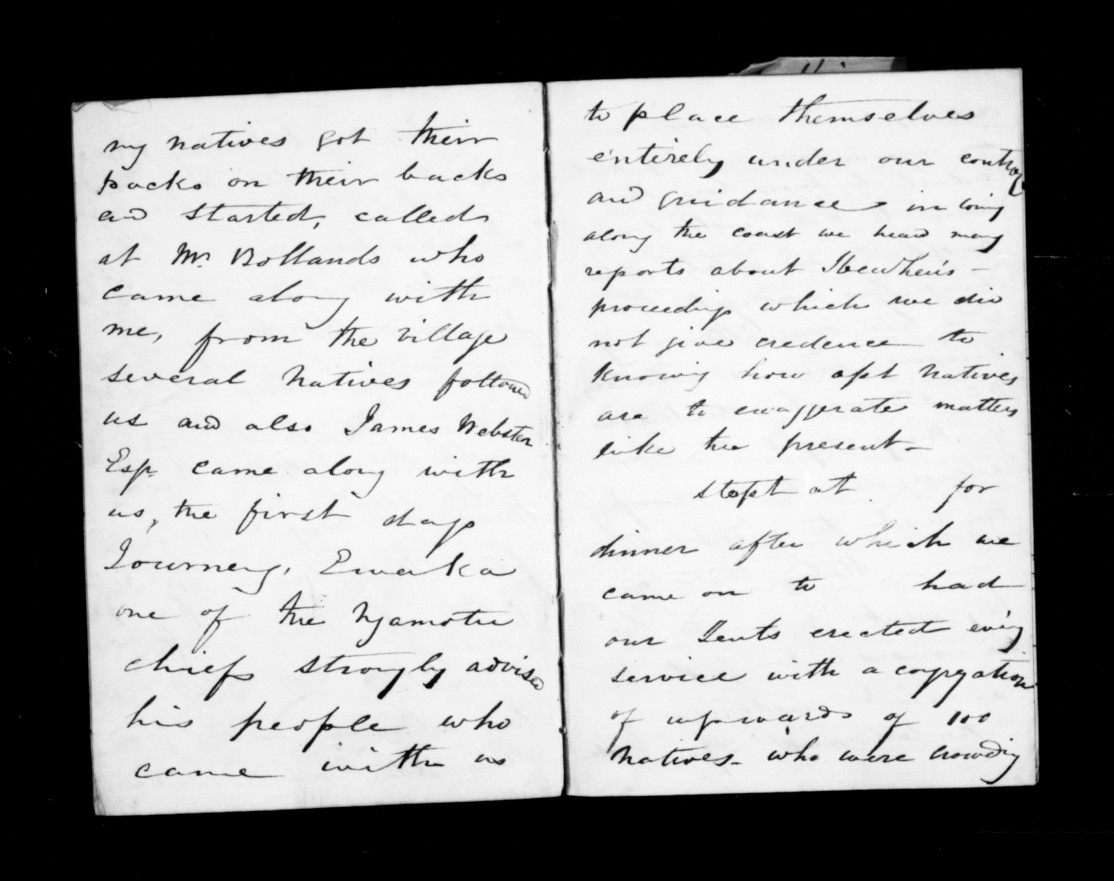 my natives got their
packs on their backs
and started, called
at Mr. Bollands who
came along with
me, from the village
several natives followed
us and also James Webster
Esq. came along with
us, the first days
Journey, Ewaka
one of the Nyamotu
chiefs strongly advised
his people who
came with us
to place themselves
entirely under our control
and guidance in coming
along the coast we heard many
reports about
proceedings which we did
not give credence to
knowing how apt natives
are to exaggerate matters
like the present -
stopt at for
dinner after which we
came on to had
our Tents erected even'g
service with a cogregation
of upwards of 100
natives - who were crowding